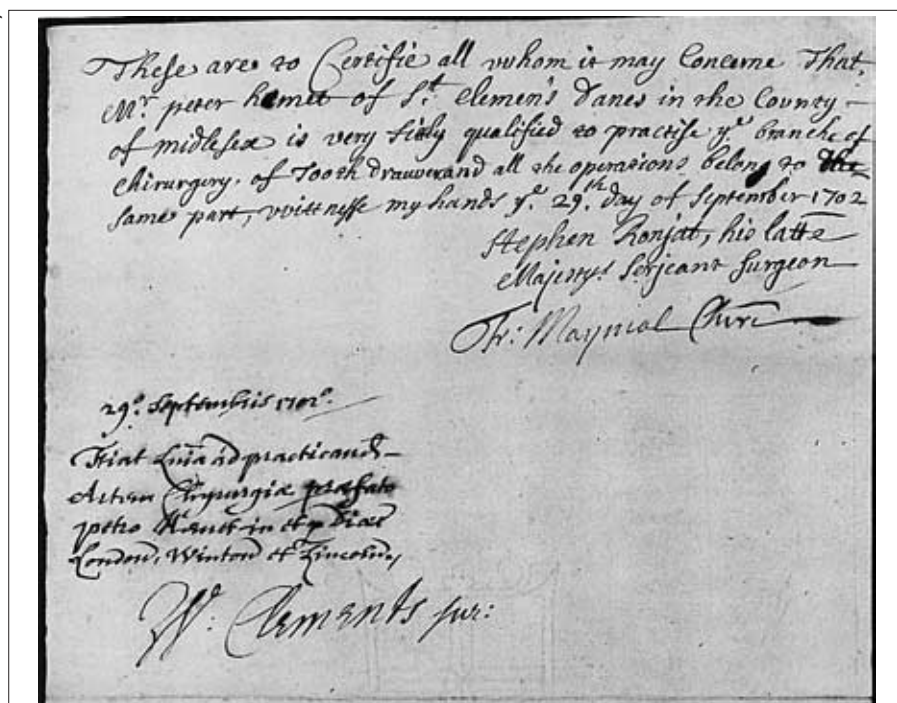 These are to Certifie all whom it may Concerne That,
Mr. peter hemet of St. Clemens Danes in the County
of midlesex is very fitly qualified to practise ye branche of
Chirurgery, of Tooth drawer and all the operations belong to the
same part, wittnesse my hands ye. 29th. day of September 1702
Stephen Ronjat, his latte
Majestys Serjeant Surgeon
Fr: Maynial Chir
29o. Septembris 1702o.
Fiat Lnia ad practicand
Artem Chyrurgiæ præfato
petro Hemet in et p Dioec
London, Winton et Lincoln,
W: Clements sur: